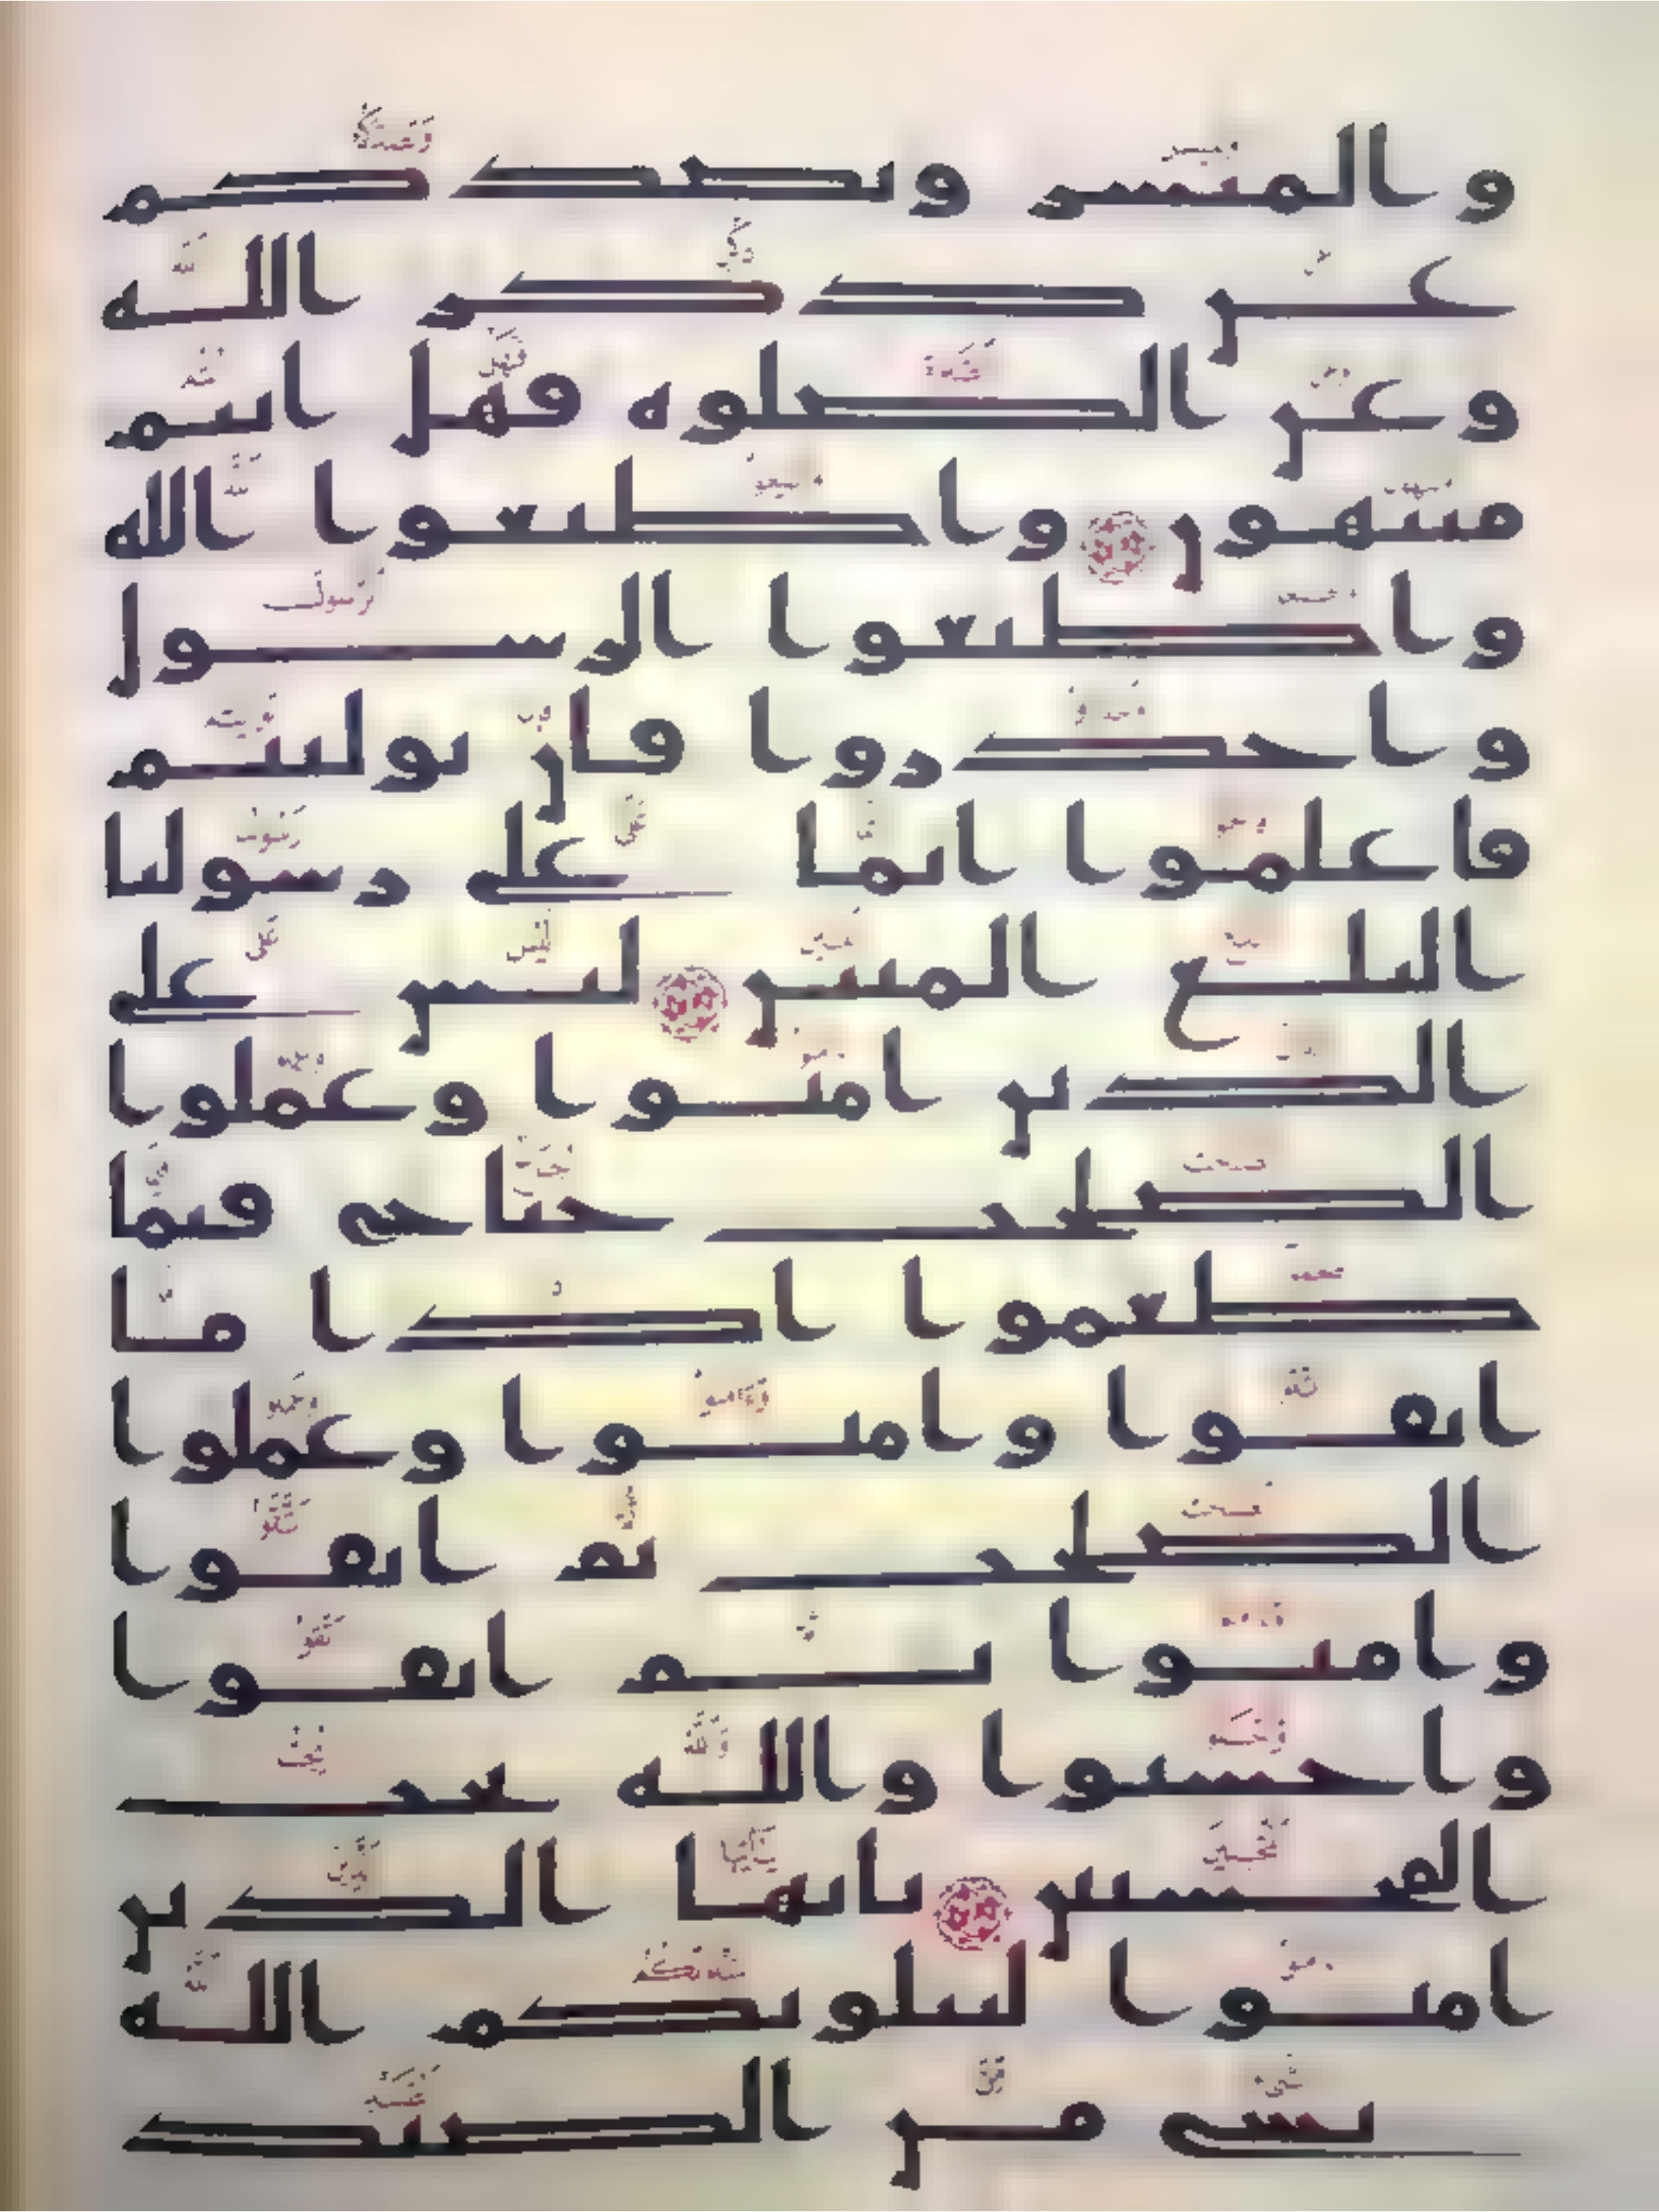 والميسر ويصدكم
عن ذكر الله
وعن الصلوه فهل انتم
منتهون واطيعوا الله
واطيعوا الرسول
واحذروا فان توليتم
فاعلموا انما على رسولنا
البلغ المبين ليس على
الذين امنوا وعملوا
الصلحت جناح فيما
طعموا اذا ما
اتقوا وامنوا وعملوا
الصلحت ثم اتقوا
وامنوا ثم اتقوا
واحسنوا والله يحب
المحسنين يايها الذين
امنوا ليبلونكم الله
بشى من الصيد